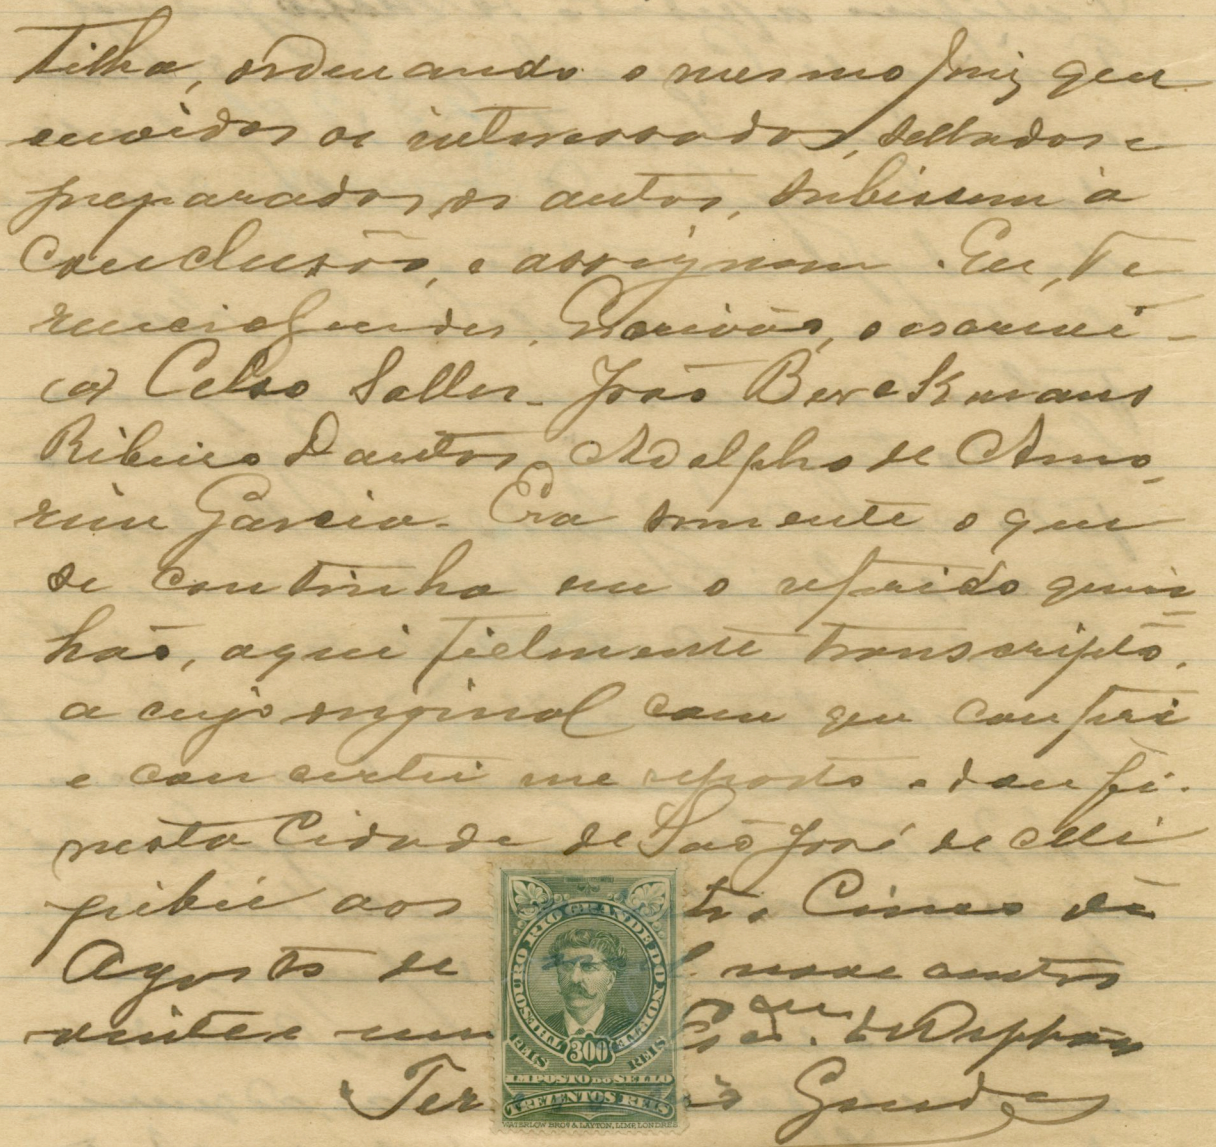 tilha, ordenando o mesmo Juiz que
ouvidos os interessados, sellados e
preparados os autos, subissem á
conclusão, e assignam. Eu, Te
rencio Guedes, Escrivão, o escrevi -
(a) Celso Salles. João Berckmans
Ribeiro Dantas, Adolpho de Amo-
rim Garcia. Era somente o que
se continha em o referido qui-
hão, aqui fielmente transcripto,
a cujo original com que conferi
e concertei me reporto e dou fé.
nesta Cidade de São José de Mi
pibú aos Cinco de
Agosto de nove centos
vinte e um
Ter Guedes
THESOURO RIO GRANDE DO NORTE
REIS 300 REIS
IMPOSTO DO SELLO
TREZENTOS REIS
WATERLOW BROS & LAYTON, LIM. LONDRES